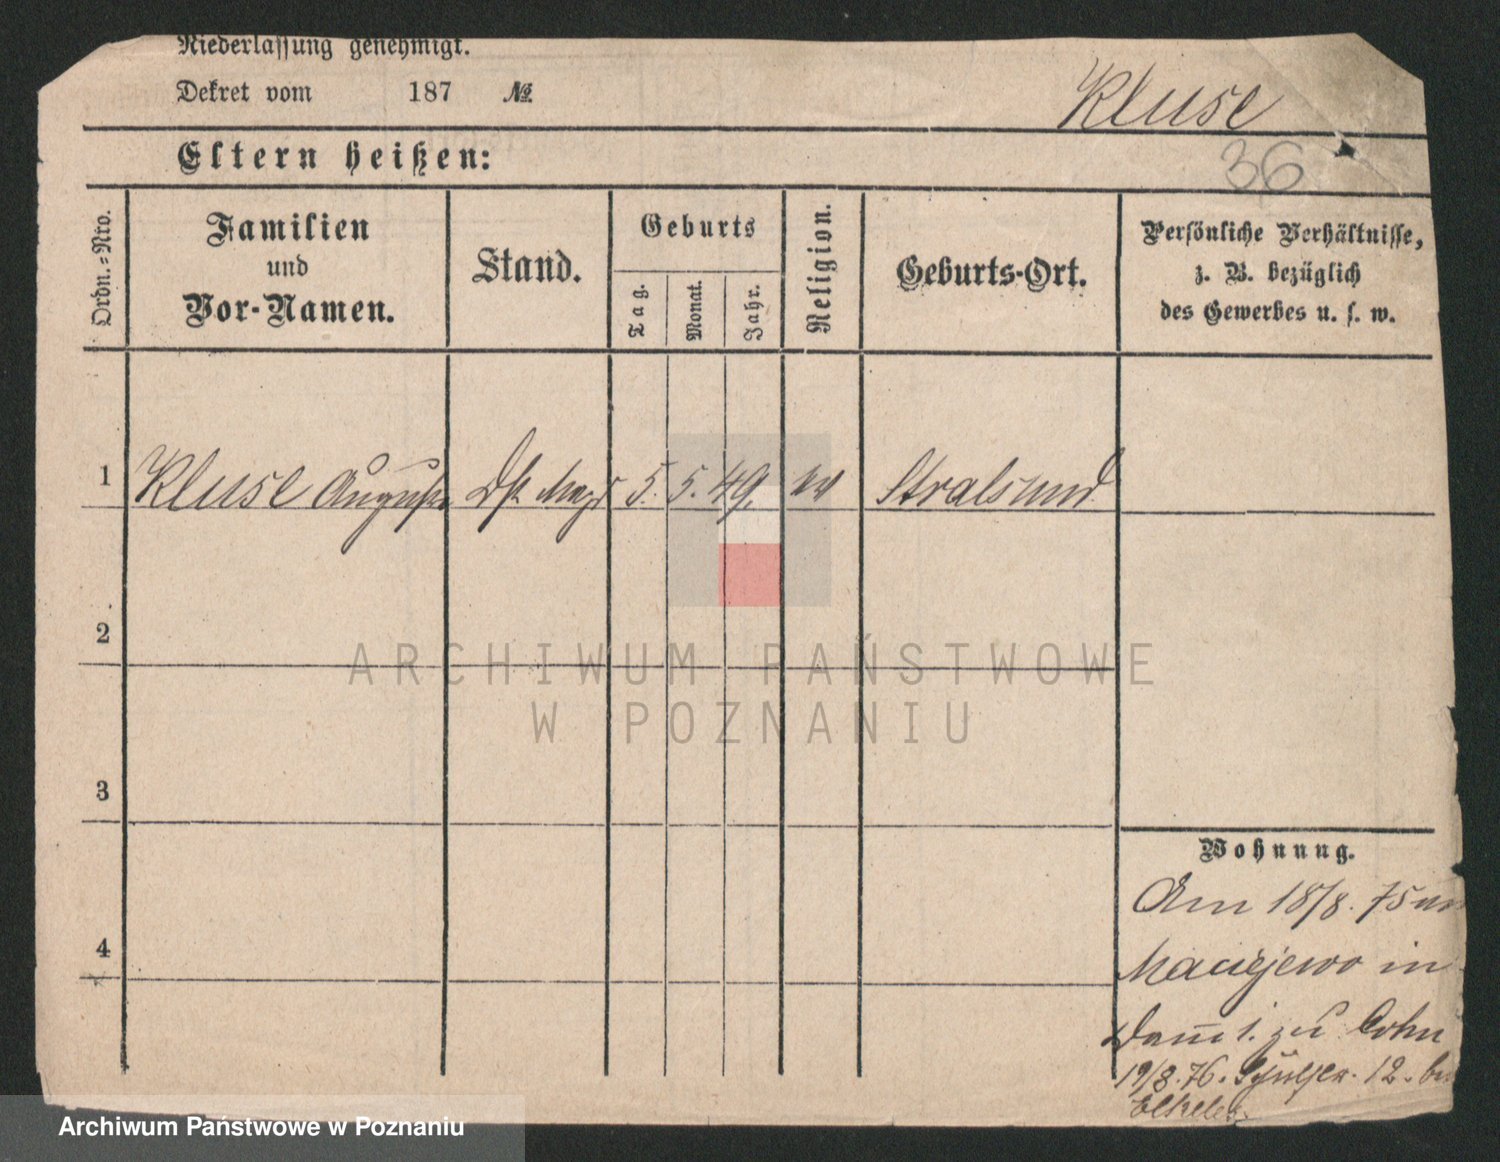 Niederlassung genehmigt.
Dekret vom 187 №
Kluse
Eltern heißen:
36
Ordn.=Nro.
Familien
und
Vor-Namen.
Stand.
Geburts
Tag.
Monat.
Jahr.
Religion.
Geburts-Ort.
Persönliche Verhältnisse,
z. B. bezüglich
des Gewerbes u. s. w.
1 Kluse Auguste Dst Magd 5. 5. 49. Stralsund
2
3
4
Wohnung.
Am 18/8. 75
Maciejewo in
1. zu Cohn
19/8. 76. 12. bei
ARCHIWUM PAŃSTWOWE
W POZNANIU
Archiwum Państwowe w Poznaniu